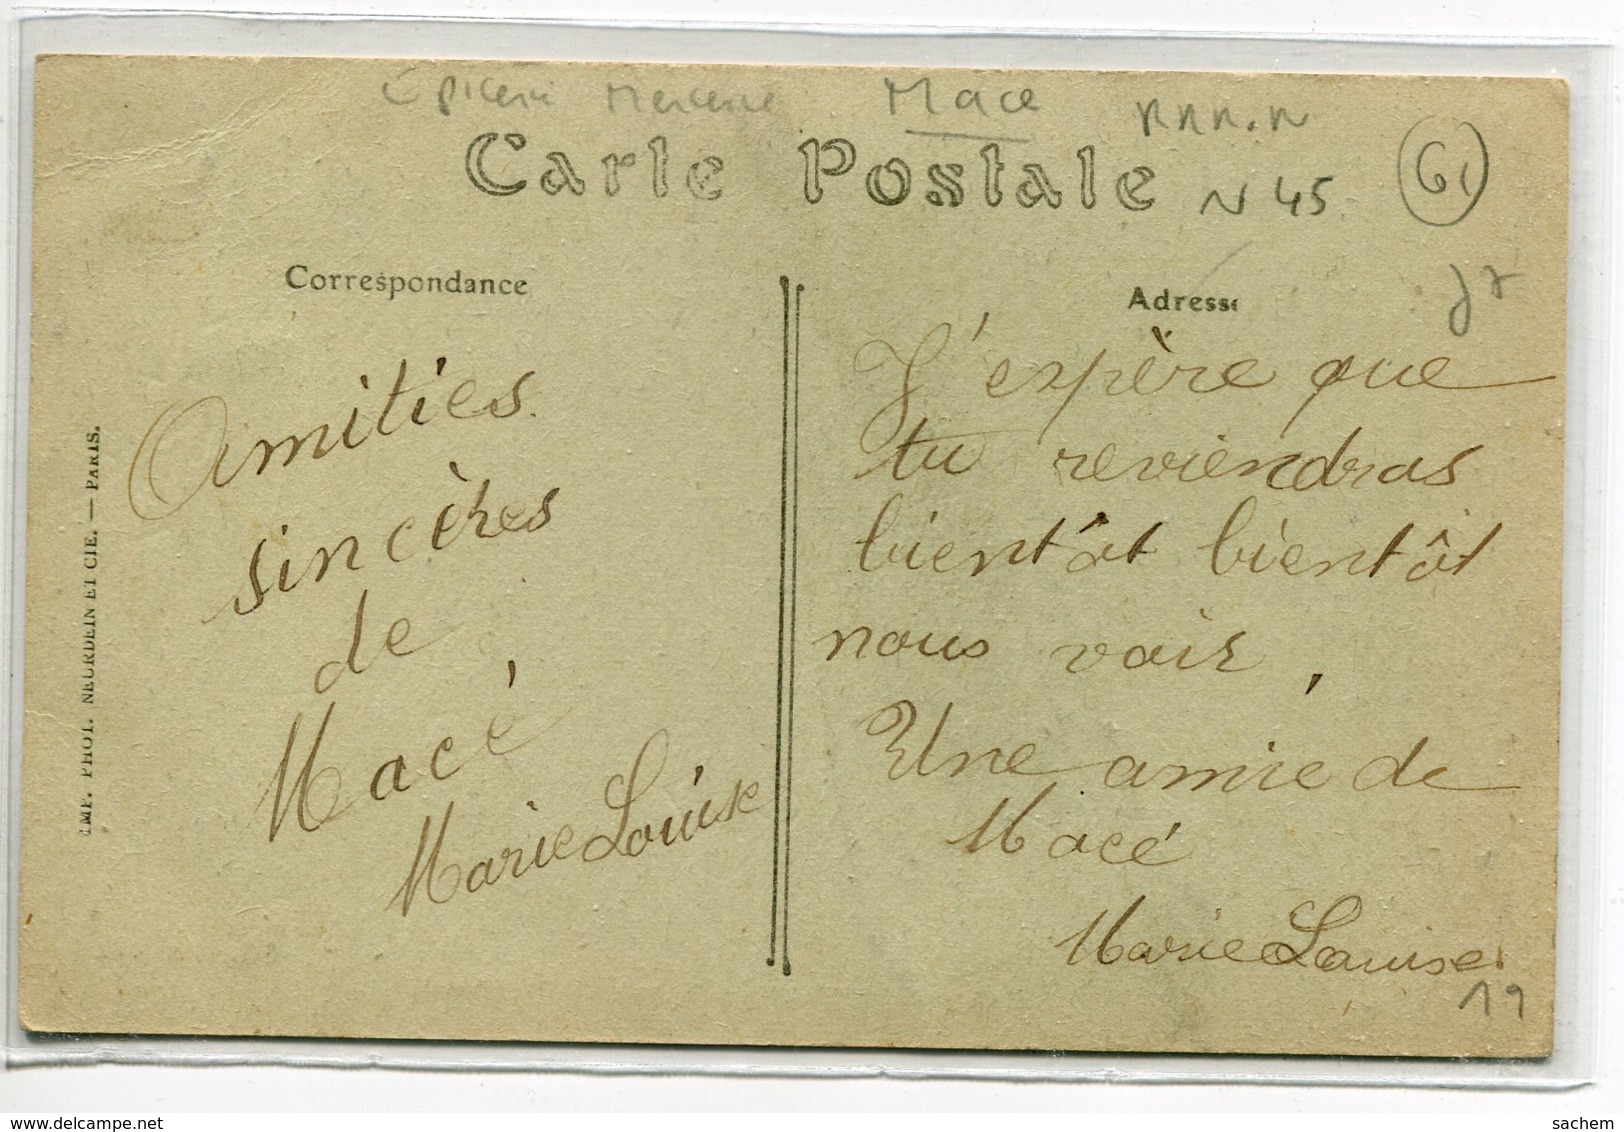 Epicerie Mercerie Mace RRR.R
Carte Postale N 45 61
Correspondance
Adresse
Amitiés
sincères
de
Macé
Marie Louise
J'espère que
tu reviendras
bientôt bientôt
nous voir,
Une amie de
Macé
Marie Louise.
19
IMP. PHOT. NEURDEIN ET CIE. — PARIS.
www.delcampe.net
sachem